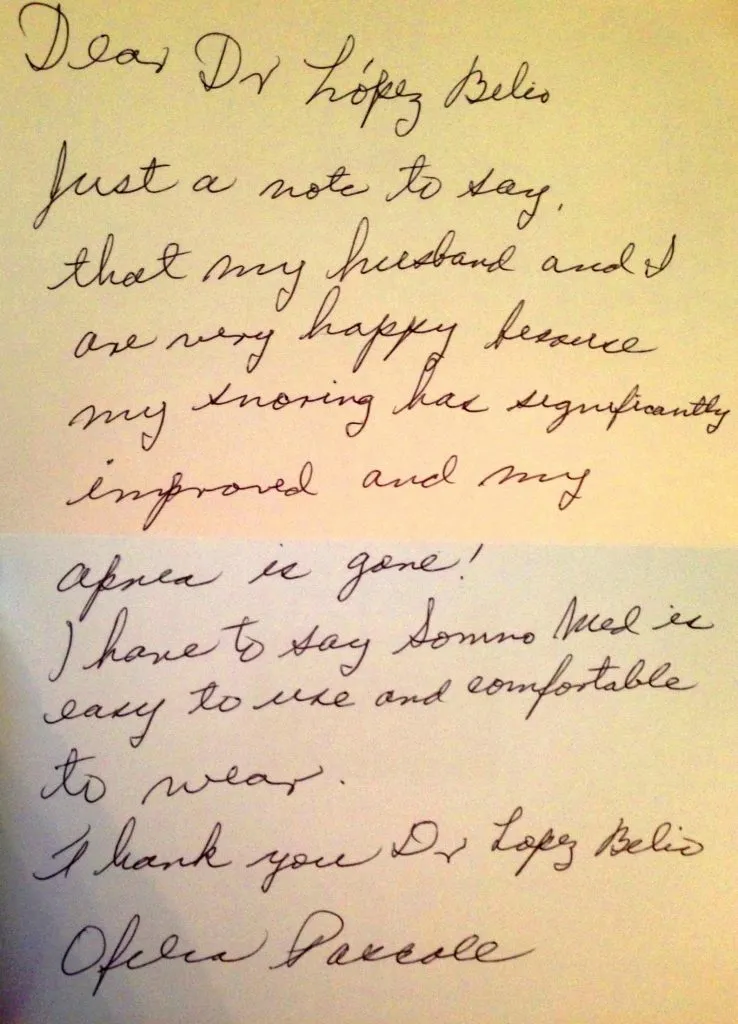 Dear Dr López Belio
Just a note to say,
that my husband and I
are very happy because
my snoring has significantly
improved and my
apnea is gone!
I have to say Somno Med is
easy to use and comfortable
to wear.
Thank you Dr Lopez Belio
Ofelia